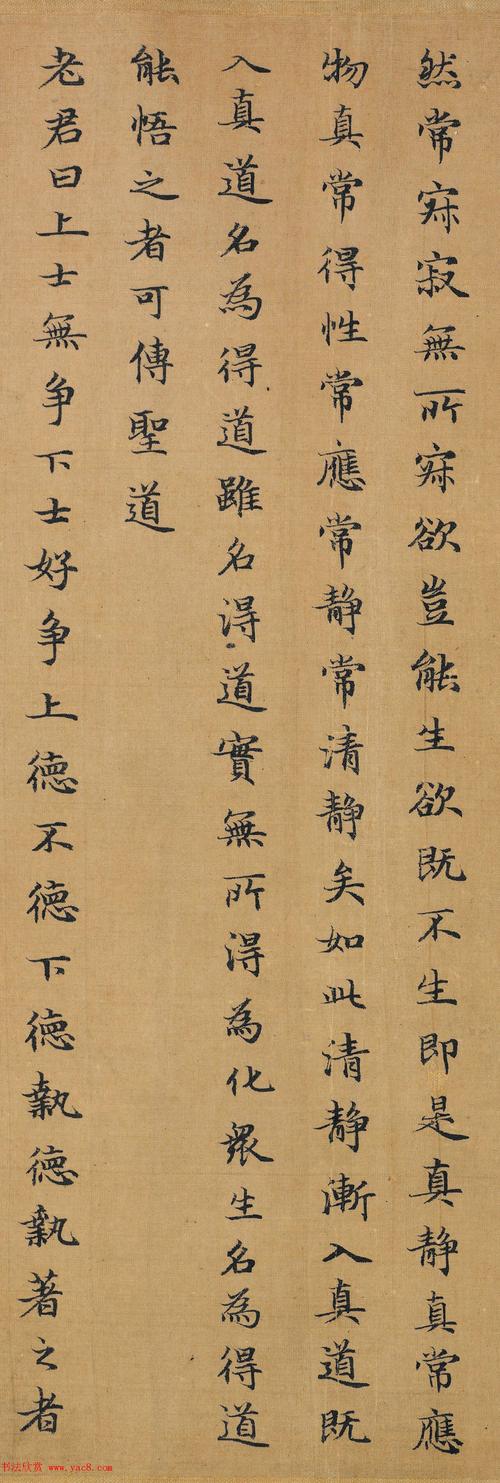 然常寂寂無所寂欲豈能生欲既不生即是真靜真常應
物真常得性常應常靜常清靜矣如此清靜漸入真道既
入真道名為得道雖名得道實無所得為化眾生名為得道
能悟之者可傳聖道
老君曰上士無争下士好争上德不德下德執德執著之者
书法欣赏 www.yac8.com